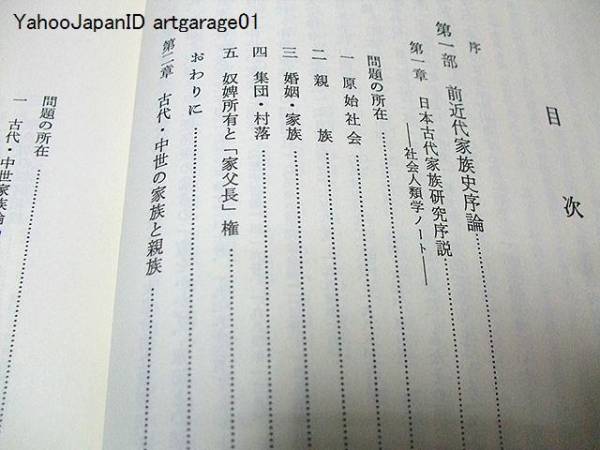 YahooJapanID artgarage01
目次
序
第一部 前近代家族史序論
第一章 日本古代家族研究序説
――社会人類学ノート――
問題の所在
一 原始社会
二 親族
三 婚姻・家族
四 集団・村落
五 奴婢所有と「家父長」権
おわりに
第二章 古代・中世の家族と親族
問題の所在
一 古代・中世家族論